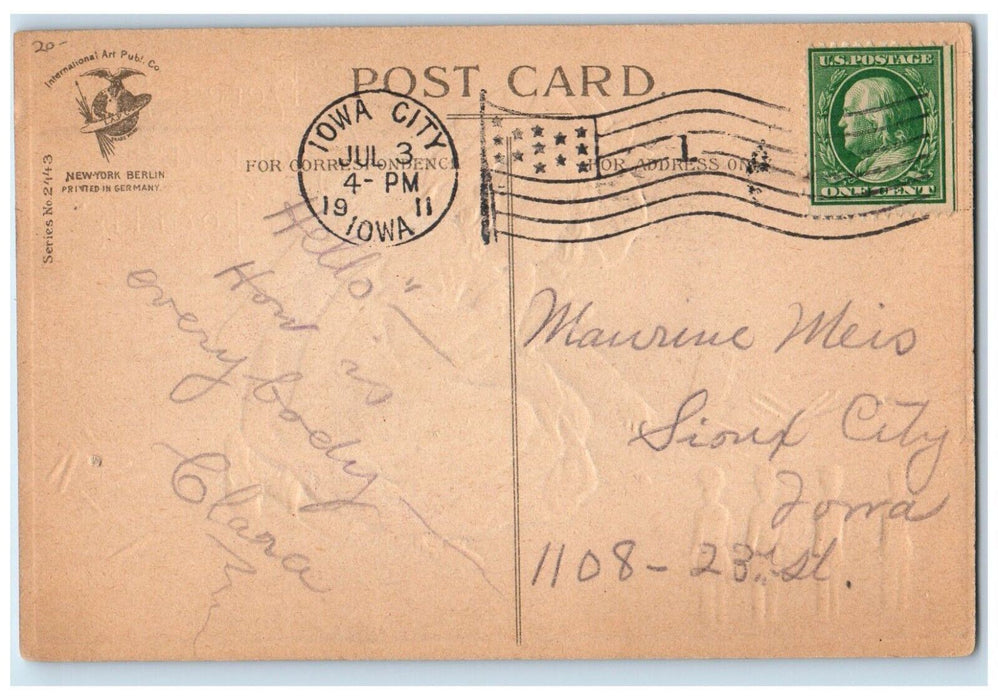 20-
International Art Publ. Co
NEW-YORK BERLIN
PRINTED IN GERMANY.
Series No. 2443
POST CARD.
FOR CORRESPONDENCE
FOR ADDRESS ONLY
IOWA CITY
JUL 3
4-PM
19 11
IOWA
1
U.S. POSTAGE
ONE CENT
Hello"—
How is
every body—
Clara
Maurine Meis
Sioux City
Iowa
1108-23rd st.